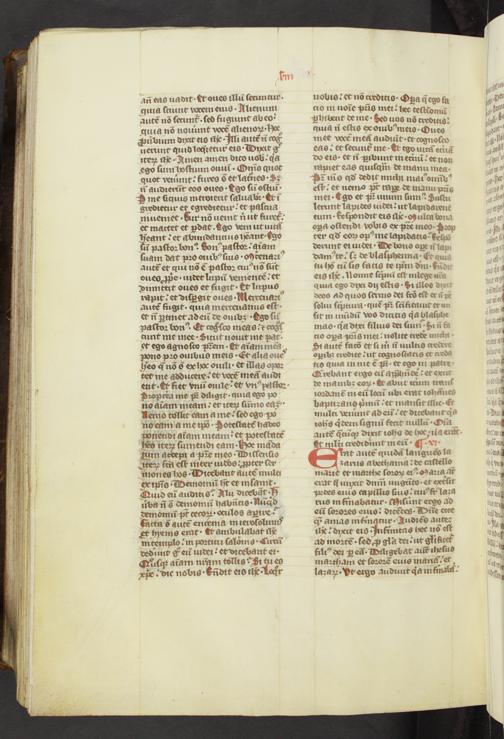 añ eas uadit · Et oues illũ secuntur ·
quia sciunt uocem eius · Alienum
autẽ nõ secunt̃ · sed fugiunt ab eo ·
quia nõ nouunt uocẽ alienoꝝ · Hoc
ꝓuerbium dixit eis ihc · Illi autẽ nõ cog
uerunt quid loqueret̃ eis · Dixit g̃
iterũ ihc · Amen amen dico uob · q̃a
ego sum hostium ouiũ · Om̃s quot
quot uenũnt · fures st̃ et latrões · Sz
nõ audierũt eos oues · Ego sũ ostiũ ·
P me siquis introierit saluabit̃ · Et i
gredietur et egredietur · et pascua
inueniet · Fur nõ uenit ñ ut furet̃ ·
et mactet et ꝑdat · Ego ueni ut uitã
heant · et abundantius heant · Ego
sũ pastor bon · Bon pastor · aĩam
suam dat pro ouibꝫ suis · Mercenari
autẽ et qui nõ ẽ pastor cui nõ sũt
oues ꝓpe · uidet lupũ uenientẽ · et
dimittit oues et fugit · Et lupus
rapit · et dispgit oues · Mercenari
autẽ fugit · quia mercennarius est ·
et nõ ꝑtinet ad eũ de ouibꝫ · Ego sũ
pastor bon · Et cogsco meas · et cogsc
unt me mee · Sicut nouit me pat̃ ·
et ego agnosco pr̃em · Et aĩam meã
pono pro ouibus meis · Et alia oues
heo q̃ nõ st̃ ex hoc ouili · et illas opor
tet me adducere · et uocẽ meã audi
ent · Et fiet unũ ouile · et un pastor ·
Propt̃ea me pr̃ diligit · quia ego po
no aĩam meam · et iterũ sũmo eaꝫ ·
Nemo tollit eam a me · sed ego po
no eam a me ip̃o · Potestatẽ habeo
ponendi aĩam meam · et potestatẽ
heo iterũ sumendi eam · Hoc mãda
tum accepi a pr̃e meo · Dissensio
iterũ fca est inter iudeos ꝓpter ser
mones hos · Dicebant autẽ multi
ex ip̃is · Demoniũ hꝫ et insanit ·
Quid eũ auditis · Alii dicebãt · H
uba nõ st̃ demoniũ habẽtis · Nũqd
demoniũ põt cecoꝝ oculos aꝑire ·
Facta st̃ autẽ encenia in ierosolimis
et hyems erat · Et ambulabat ihc
in templo · in porticu salomõis · Circũ
dederunt g̃ eũ iudei · et dicebant ei ·
Quousqꝫ aĩam nr̃am tollis · Si tu es
xp̃c · dic nobis · Rñdit eis ihc · Loqr
uobis · et nõ creditis · Opa q̃ ego fa
cio in noĩe pr̃is mei · hec testimoniũ
ꝑhibent de me · Sed uos nõ creditis ·
quia nõ estis ex ouibꝫ meis · Oues
mee uocẽ meã audiũt · et cognosco
eas · et secunt̃ me · Et ego uitã et̃nã
do eis · et nõ ꝑibunt in et̃nũ · et non
rapiet eas quisq̃m de manu mea ·
Pr̃ mei qd dedit michi mai omibꝫ
est · et nemo põt rape de manu pr̃is
mei · Ego et pr̃ unum sum · Sustu
lerunt lapides iudei · ut lapidarent
eum · Respondit eis ihc · Multa bona
opa ostendi uobis ex pr̃e meo · Prop
ter qd eoꝝ opus me lapidatis · Respõ
derunt ei iudei · De bono ope nõ lapi
dam te · sz de blasphemia · Et quia
tu hõ cũ sis facis te ip̃m dm̃ · Rñdit
eis ihc · Nonne sc̃ptũ est in lege ur̃a
quia ego dixi dii estis · Si illos dixit
deos ad quos sermo dei fcũs est · et nõ põt
solui sc̃ptura · quẽ pr̃ sc̃ificauit et mi
sit in mũdũ · uos dicitis q̃a blasphe
mas · q̃a dixi filius dei sum · Si nõ fa
cio opa pr̃is mei · nolite crede michi ·
Si autẽ facio et si m nõ uultis credere
opibꝫ credite · ut cognoscatis et creda
tis quia in me ẽ pr̃ · et ego in patre ·
Querebant ergo eũ app̃hende · et exiuit
de manibꝫ eoꝝ · Et abiit iterũ trans
iordanẽ in eũ locũ ubi erat iohannes
baptizans p̃mũ · et mansit illic · Et
multi uenũnt ad eũ · et dicebant q̃a
ioh̃s qdem signũ fecit nullũ · Om̃ia
autẽ q̃cũqꝫ dixit ioh̃s de hoc · ũa erãt ·
Et m̃lti crediderunt in eũ · ¶ · xi ·
Erat autẽ quidã languẽs la
zarus a bethania · de castello
marie et marthe soroꝝ ei · Maria at̃
erat q̃ unxit dnm̃ ungnẽto · et exc̃sit
pedes eius capillis suis · cui fr̃ laza
rus infirmabat̃ · Miserũt ergo ad
eũ sorores eius · dicẽtes · Dñe ecce
q̃ amas infirmatur · Audiẽs autẽ
ihc · dixit eis · Infirmitas hec nõ est
ad mortẽ · sed ꝓ gl̃a dei · ut gl̃ificet̃
fili dei ꝑ eã · Diligebat autẽ ihesus
martham et sororẽ eius mariã · et
lazaꝝ · Ut ergo audiuit q̃a infirmabat̃ ·